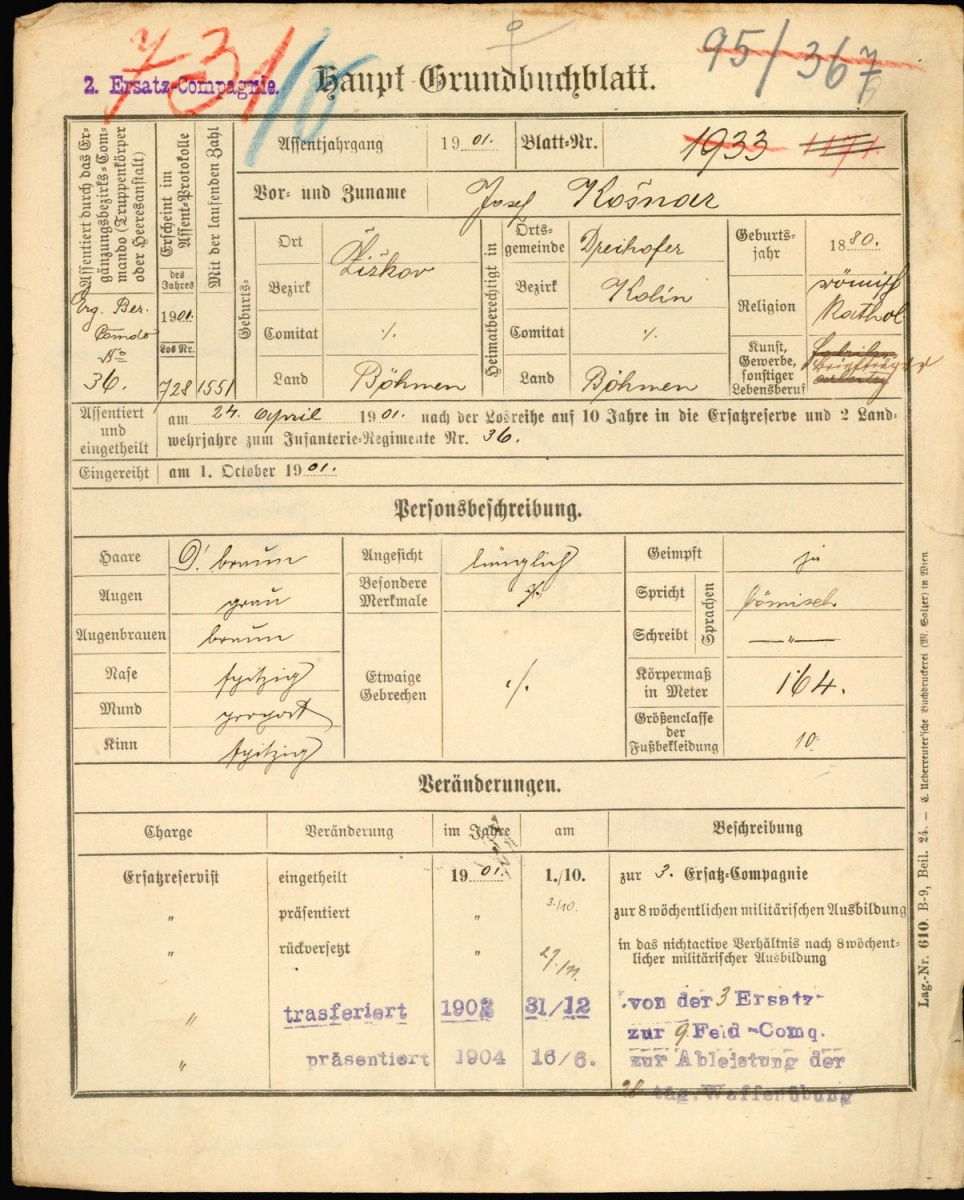 731/15
95/367
2. Ersatz-Compagnie.
Haupt Grundbuchblatt.
Assentiert durch das Er-
gänzungsbezirks-Com-
mando (Truppenkörper
oder Heeresanstalt)
Erg. Bez.
Comdo
No
36.
Erscheint im
Assent-Protokolle
des
Jahres
1901.
Los Nr.
728
Mit der laufenden Zahl
1551
Assentjahrgang 1901. Blatt-Nr. 1933 1171.
Vor- und Zuname Josef Košnar
Geburts-
Ort Žižkov
Bezirk
Comitat ./.
Land Böhmen
Heimatberechtigt in
Orts-
gemeinde Dreihöfer
Bezirk Kolin
Comitat ./.
Land Böhmen
Geburts-
jahr 1880.
Religion römisch
Kathol.
Kunst,
Gewerbe,
sonstiger
Lebensberuf
Briefträger
Assentiert
und
eingetheilt
am 24. April 1901. nach der Losreihe auf 10 Jahre in die Ersatzreserve und 2 Land-
wehrjahre zum Infanterie-Regimente Nr. 36.
Eingereiht am 1. October 1901.
Personsbeschreibung.
Haare D. braun
Augen grau
Augenbrauen braun
Nase spitzig
Mund proport
Kinn spitzig
Angesicht länglich
Besondere
Merkmale ./.
Etwaige
Gebrechen ./.
Geimpft ja
Sprachen
Spricht böhmisch
Schreibt —"—
Körpermaß
in Meter 164.
Größenclasse
der
Fußbekleidung 10.
Veränderungen.
Charge Veränderung im Jahre am Beschreibung
Ersatzreservist eingetheilt 1901. 1./10. zur 3. Ersatz-Compagnie
" präsentiert " 3./10. zur 8 wöchentlichen militärischen Ausbildung
" rückversetzt " 27./11. in das nichtactive Verhältnis nach 8 wöchent-
licher militärischer Ausbildung
" trasferiert 1902 31/12 von der 3 Ersatz-
zur 9 Feld-Comq.
" präsentiert 1904 16/6. zur Ableistung der
28 täg. Waffenübung
Lag.-Nr. 610. B-9, Beil. 24. — C. Ueberreuter'sche Buchdruckerei (M. Salzer) in Wien